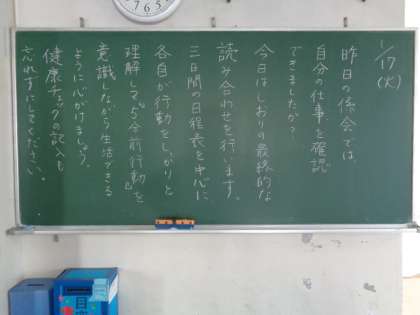 1/17
(火)
昨日の係会では
自分の仕事を確認
できましたか?
今日はしおりの最終的な
読み合わせを行います。
三日間の日程表を中心に、
各自が行動をしっかりと
理解して"5分前行動"を
意識しながら生活できる
ように心がけましょう。
健康チェックの記入も
忘れずにしてください。